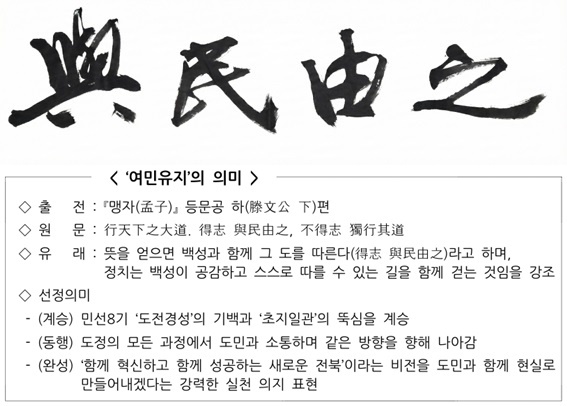 與民由之
< '여민유지'의 의미 >
◇ 출 전 : 『맹자(孟子)』 등문공 하(滕文公 下)편
◇ 원 문 : 行天下之大道. 得志 與民由之, 不得志 獨行其道
◇ 유 래 : 뜻을 얻으면 백성과 함께 그 도를 따른다(得志 與民由之)라고 하며,
정치는 백성이 공감하고 스스로 따를 수 있는 길을 함께 걷는 것임을 강조
◇ 선정의미
- (계승) 민선8기 '도전경성'의 기백과 '초지일관'의 뚝심을 계승
- (동행) 도정의 모든 과정에서 도민과 소통하며 같은 방향을 향해 나아감
- (완성) '함께 혁신하고 함께 성공하는 새로운 전북'이라는 비전을 도민과 함께 현실로
만들어내겠다는 강력한 실천 의지 표현